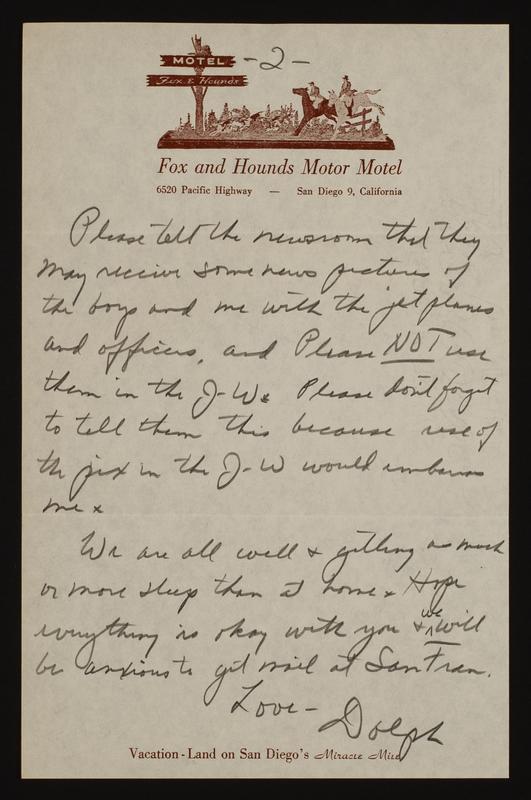 MOTEL
Fox & Hounds
-2-
Fox and Hounds Motor Motel
6520 Pacific Highway — San Diego 9, California
Please tell the newsroom that they
may receive some news pictures of
the boys and me with the jet planes
and officers, and Please NOT use
them in the J-W. Please don't forget
to tell them this because use of
the pix in the J-W would embarras
me x
We are all well & getting as much
or more sleep than at home x Hope
everything is okay with you & we will
be anxious to get mail at San Fran.
Love-
Dolph
Vacation-Land on San Diego's Miracle Mile